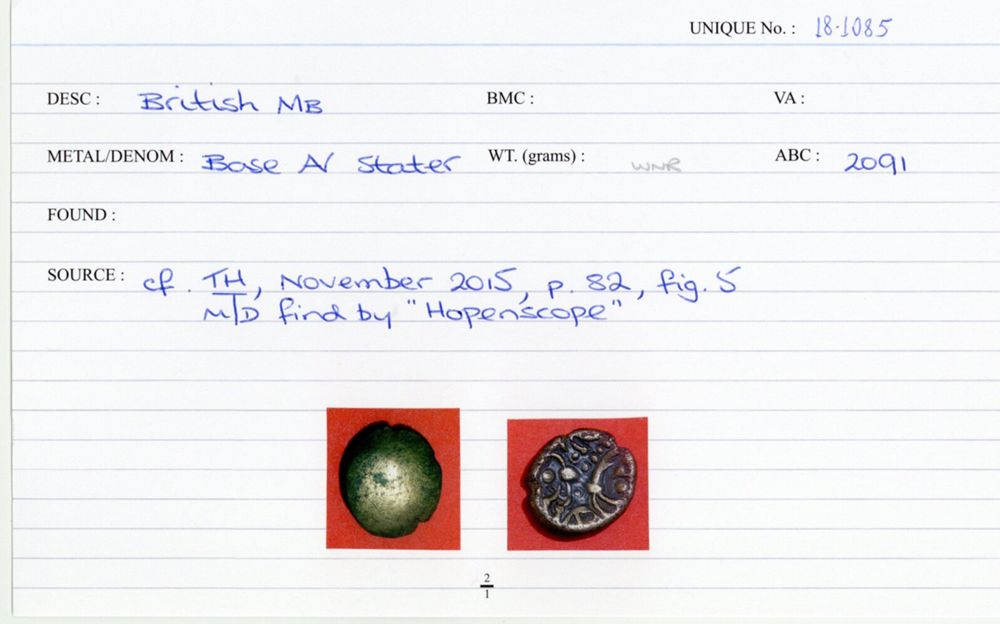 UNIQUE No. : 18-1085
DESC : British MB BMC : VA :
METAL/DENOM : Base AV Stater WT. (grams) : WNR ABC : 2091
FOUND :
SOURCE : cf. TH, November 2015, p. 82, fig. 5
M/D find by "Hopenscope"
2
1